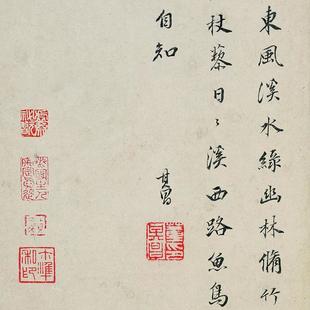 東風溪水綠幽林脩竹
杖藜日〻溪西路魚鳥
自知
其昌